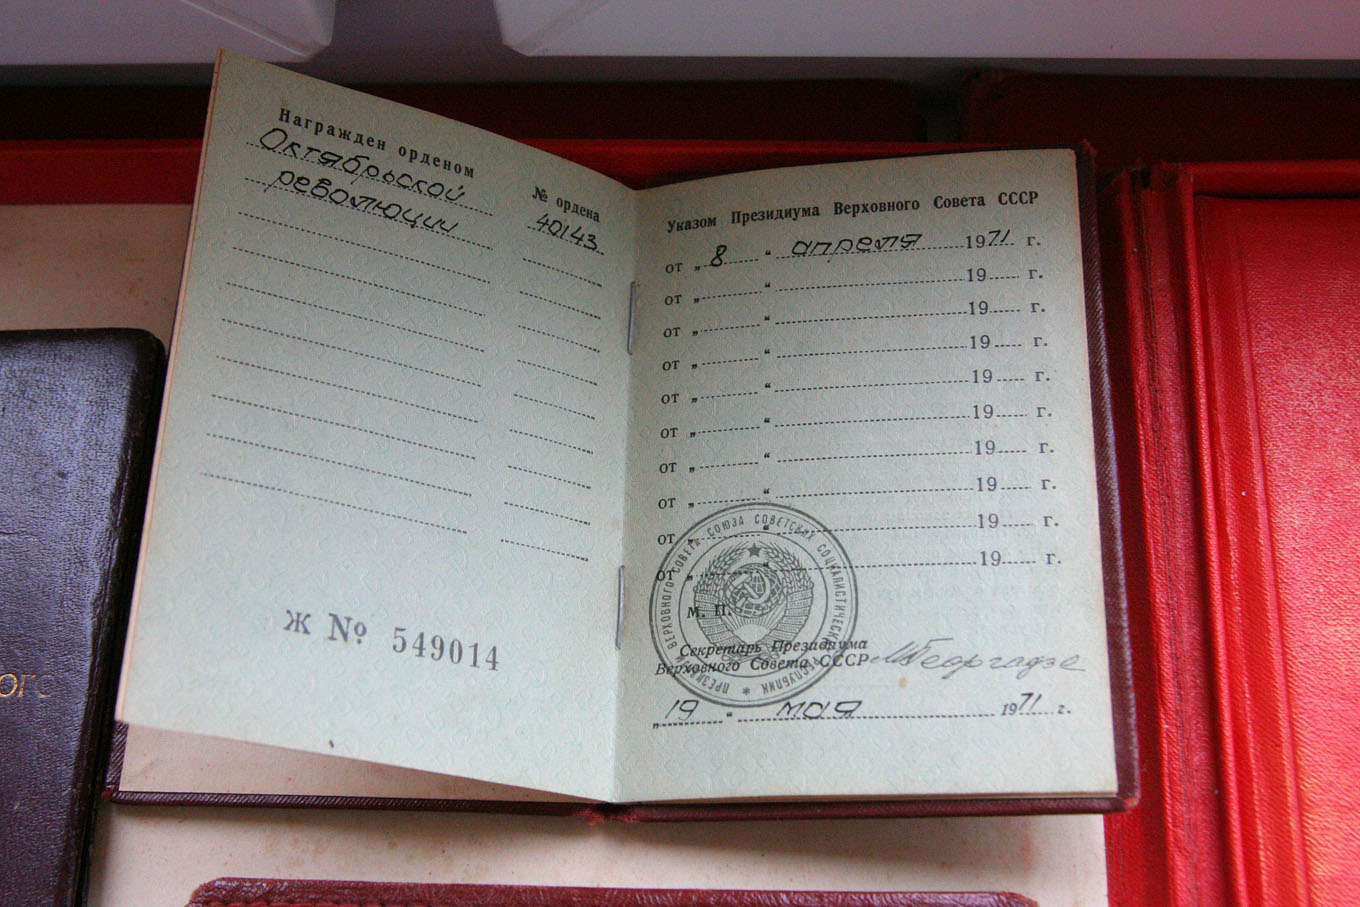 Награжден орденом
Октябрьской
революции
№ ордена
40143
Ж № 549014
Указом Президиума Верховного Совета СССР
от „ 8 “ апреля 1971 г.
от „ “ 19 г.
от „ “ 19 г.
от „ “ 19 г.
от „ “ 19 г.
от „ “ 19 г.
от „ “ 19 г.
от „ “ 19 г.
от „ “ 19 г.
от „ “ 19 г.
М. П.
ПРЕЗИДИУМ ВЕРХОВНОГО СОВЕТА СОЮЗА СОВЕТСКИХ СОЦИАЛИСТИЧЕСКИХ РЕСПУБЛИК
Секретарь Президиума
Верховного Совета СССР МГеоргадзе
„ 19 “ мая 1971 г.